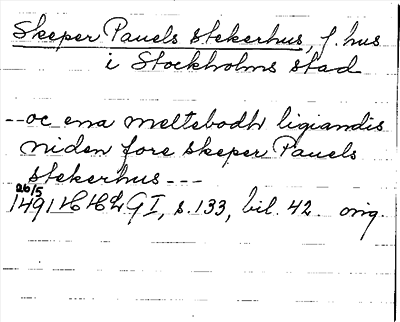 Skeper Pauels stekerhus, f. hus
i Stockholms stad
--oc ena meltebodh ligiandis
niden fore skeper Pauels
stekerhus---
26/5
1491 HSH G I, s. 133, bil. 42. orig.